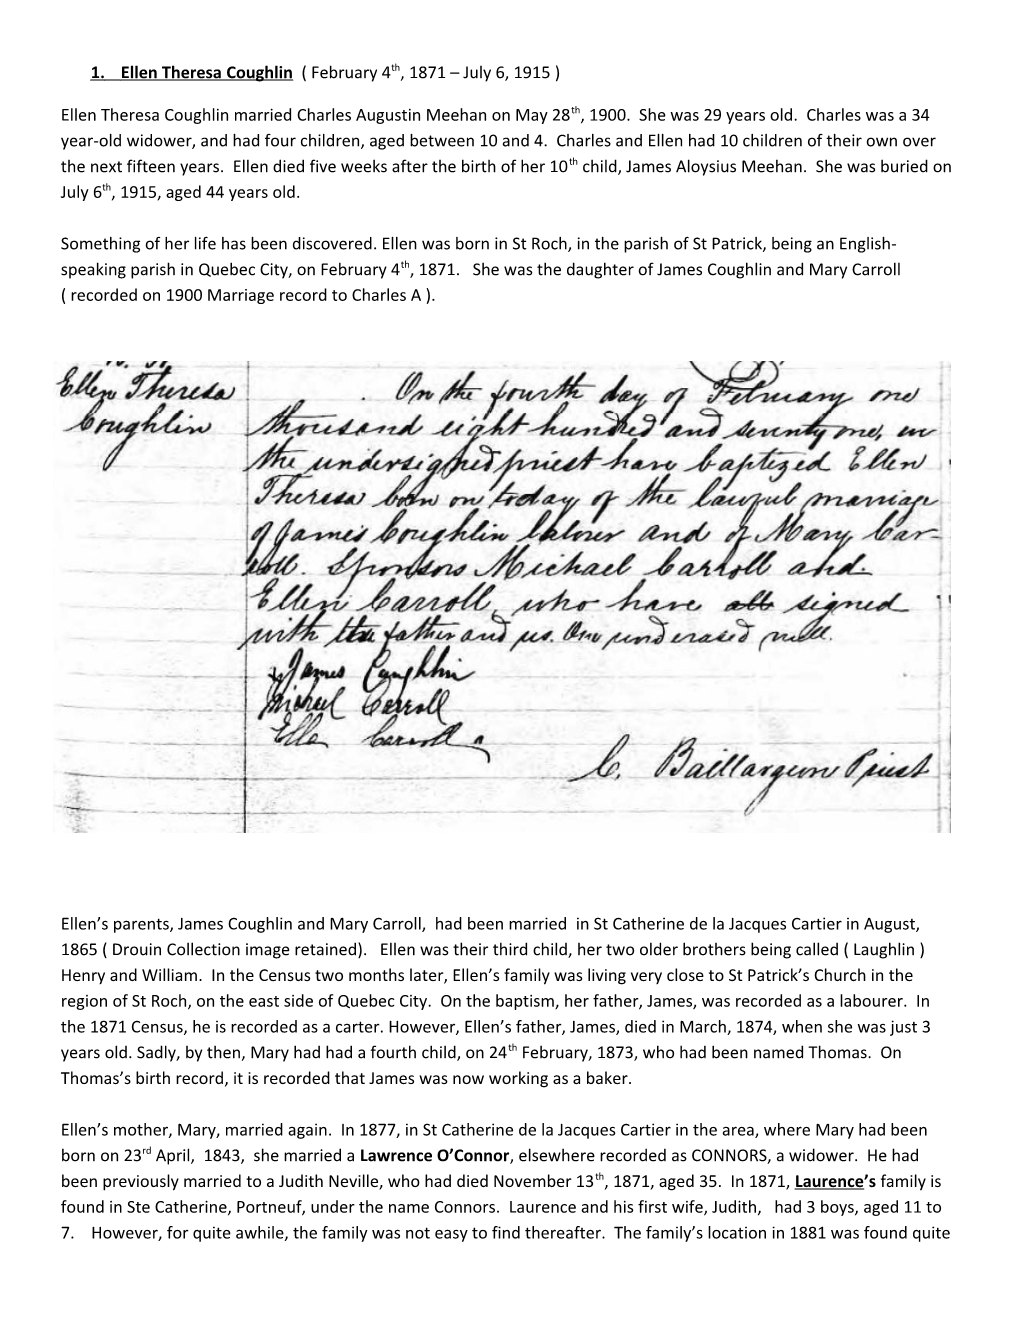 1. Ellen Theresa Coughlin ( February 4th, 1871 – July 6, 1915 )
Ellen Theresa Coughlin married Charles Augustin Meehan on May 28th, 1900. She was 29 years old. Charles was a 34
year-old widower, and had four children, aged between 10 and 4. Charles and Ellen had 10 children of their own over
the next fifteen years. Ellen died five weeks after the birth of her 10th child, James Aloysius Meehan. She was buried on
July 6th, 1915, aged 44 years old.
Something of her life has been discovered. Ellen was born in St Roch, in the parish of St Patrick, being an English-
speaking parish in Quebec City, on February 4th, 1871. She was the daughter of James Coughlin and Mary Carroll
( recorded on 1900 Marriage record to Charles A ).
Ellen Theresa
Coughlin
On the fourth day of February one
thousand eight hundred and seventy one, we
the undersigned priest have baptized Ellen
Theresa born on today of the lawful marriage
of James Coughlin labourer and of Mary Car-
roll. Sponsors Michael Carroll and
Ellen Carroll, who have all signed
with the father and us. One word erased null.
James Coughlin
Michael Carroll
Ellen Carroll
C. Baillargeon Priest
Ellen’s parents, James Coughlin and Mary Carroll, had been married in St Catherine de la Jacques Cartier in August,
1865 ( Drouin Collection image retained). Ellen was their third child, her two older brothers being called ( Laughlin )
Henry and William. In the Census two months later, Ellen’s family was living very close to St Patrick’s Church in the
region of St Roch, on the east side of Quebec City. On the baptism, her father, James, was recorded as a labourer. In
the 1871 Census, he is recorded as a carter. However, Ellen’s father, James, died in March, 1874, when she was just 3
years old. Sadly, by then, Mary had had a fourth child, on 24th February, 1873, who had been named Thomas. On
Thomas’s birth record, it is recorded that James was now working as a baker.
Ellen’s mother, Mary, married again. In 1877, in St Catherine de la Jacques Cartier in the area, where Mary had been
born on 23rd April, 1843, she married a Lawrence O’Connor, elsewhere recorded as CONNORS, a widower. He had
been previously married to a Judith Neville, who had died November 13th, 1871, aged 35. In 1871, Laurence’s family is
found in Ste Catherine, Portneuf, under the name Connors. Laurence and his first wife, Judith, had 3 boys, aged 11 to
7. However, for quite awhile, the family was not easy to find thereafter. The family’s location in 1881 was found quite